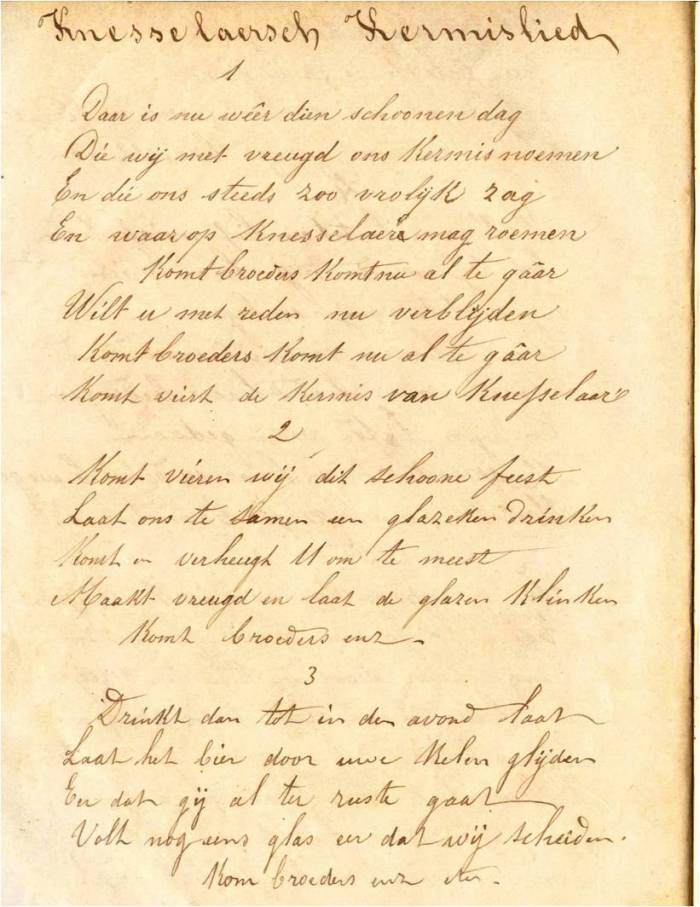 Knesselaersch Kermislied
1
Daar is nu wêêr dien schoonen dag
Dié wij met vreugd ons Kermis noemen
En dié ons steeds zoo vrolijk zag
En waarop Knesselaere mag roemen
Komt broeders Komt nu al te gâar
Wilt u met reden nu verblijden
Komt broeders Komt nu al te gâar
Komt viert de Kermis van Knesselaar
2
Komt viéren wij dit schoone feest
Laat ons te samen een glazeken drinken
Komt en verheugt U om te meest
Maakt vreugd en laat de glazen Klinken
Komt broeders enz -
3
Drinkt dan tot in den avond laat
Laat het bier door uwe Kelen glijden
Eer dat gij al ter ruste gaat
Volt nog eens glas eer dat wij scheiden.
Kom broeders enz etc -